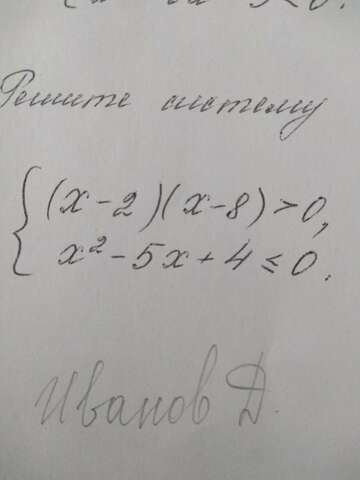 Решите систему
(x-2)(x-8)>0,
x²-5x+4≤0.
Иванов Д.